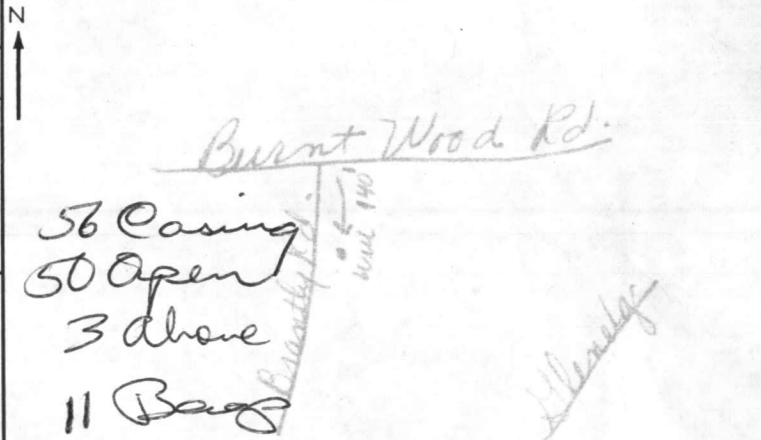 N
Burnt Wood Rd.
56 Casing
50 Open
3 above
11 Bags
Brantly Rd.
Glenelg